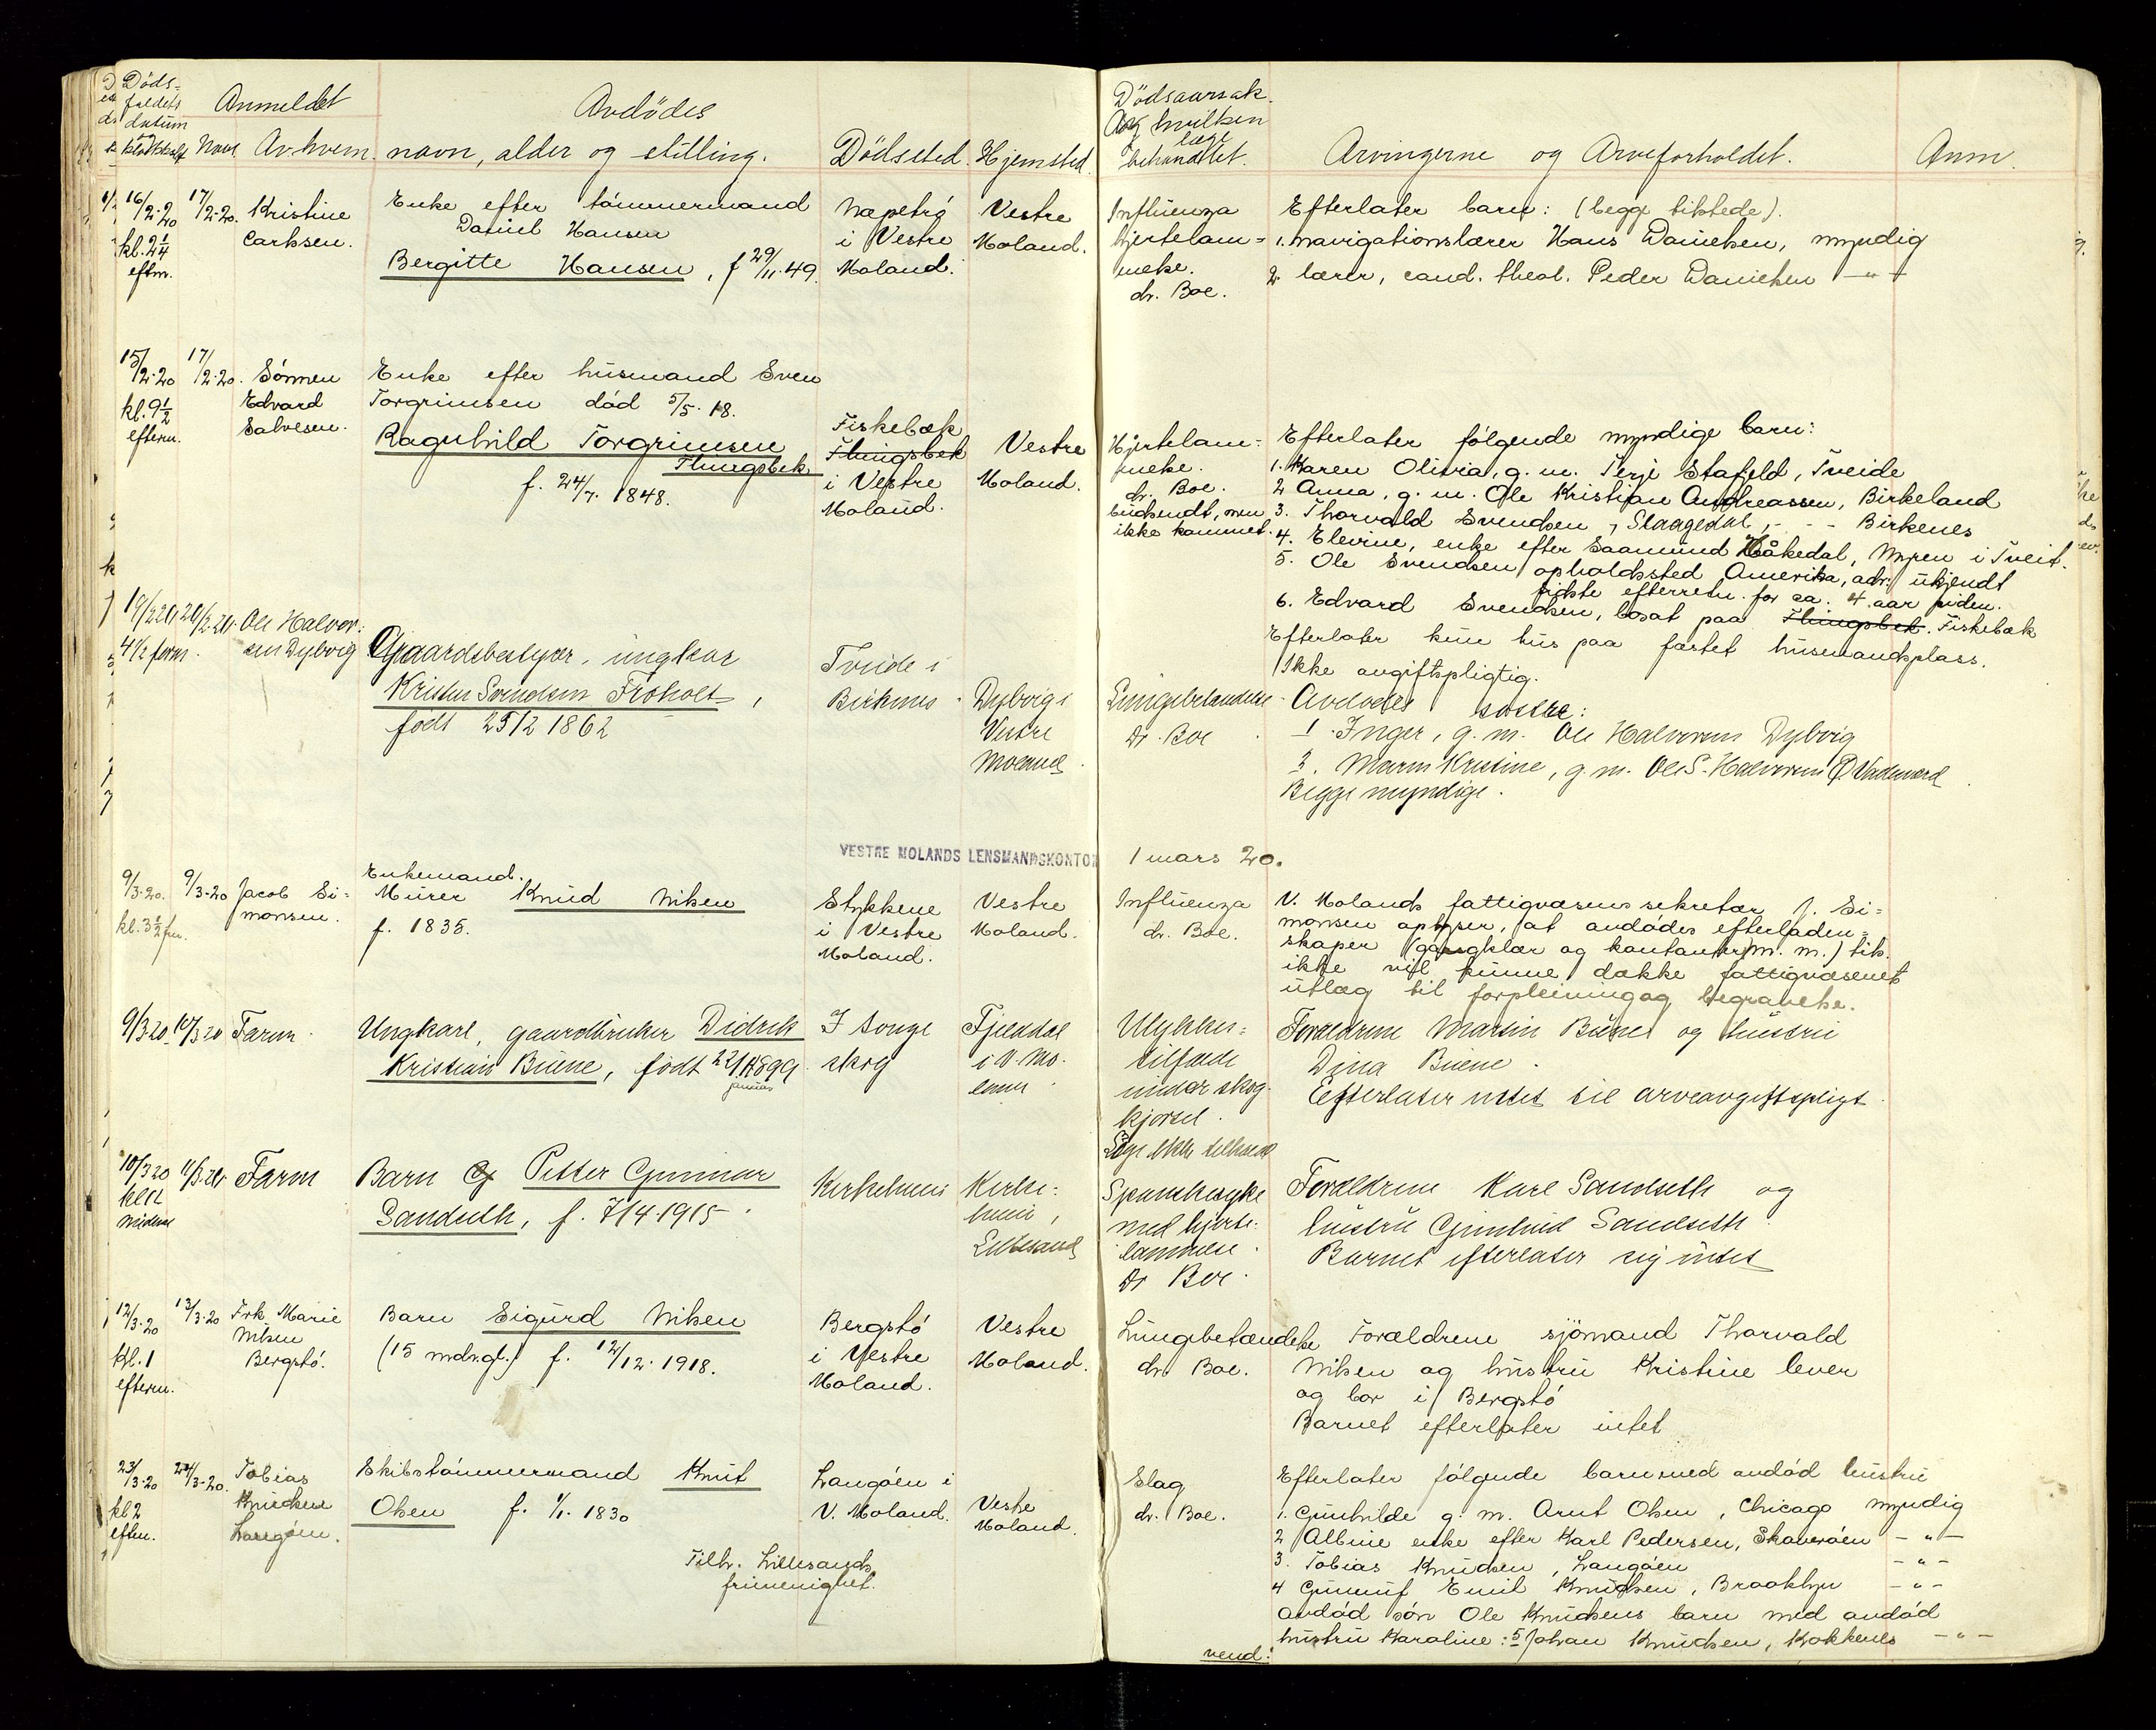 Døds-
faldets
datum
klokkeslet
Anmeldt
Naar
Av hvem.
Avdødes
navn, alder og stilling.
Dødssted.
Hjemsted.
Dødsaarsak.
Og hvilken
læge
behandlet.
Arvingerne og Arveforholdet.
Anm.
16/2-20
kl. 2 1/4
eftm.
17/2-20.
Kristine
Carlsen.
Enke efter tømmermand
Daniel Hansen
Bergitte Hansen, f 29/11.49.
Næpetrø
i Vestre
Moland.
Vestre
Moland.
Influenza
Hjertelam=
melse.
dr. Boe.
Efterlater barn: (begge tilstede).
1. navigationslærer Hans Danielsen, myndig
2. lærer, cand. theol. Peder Danielsen —"—
15/2-20
kl. 9 1/2
efterm.
17/2-20.
Sønnen
Edvard
Salvesen.
Enke efter husmand Sven
Torgrimsen død 5/5. 18.
Ragnhild Torgrimsen
Flingsbek
f. 24/7. 1848.
Fiskebæk
Flingsbek
i Vestre
Moland.
Vestre
Moland.
Hjertelam=
melse.
dr. Boe.
budsendt, men
ikke kommet.
Efterlater følgende myndige barn:
1. Karen Olivia, g. m. Terje Stafeld, Tveide
2 Anna, g. m. Ole Kristian Andreassen, Birkeland
3. Thorvald Svendsen, Slaagedal, - - - Birkenes
4. Elevine, enke efter Saamund Håkedal, Myren i Tveit.
5. Ole Svendsen opholdssted Amerika, adr: ukjendt
sidste efterretn. for ca. 4 aar siden.
6. Edvard Svendsen, bosat paa Flingsbek. Fiskebæk
Efterlater kun hus paa fæstet husmandsplass.
Ikke avgiftspligtig.
19/2 20
4 1/2 form.
20/2-20.
Ole Halvor-
sen Dybvig
Gaardsbestyrer, ungkar
Kristen Svendsen Froholt,
født 25/2 1862
Tveide i
Birkenes
Dybvig i
Vestre
Moland.
Lungebetændelse.
Dr. Boe
Avdødes søstre:
1. Inger, g. m. Ole Halvorsen Dybvig
2. Maren Kristine, g. m. Ole S. Halvorsen
Begge myndige.
VESTRE MOLANDS LENSMANDSKONTOR
1 mars 20.
9/3-20.
kl. 3 1/2 fm.
9/3-20
Jacob Si=
monsen.
Enkemand.
Murer Knud Nilsen
f. 1835.
Stykkene
i Vestre
Moland.
Vestre
Moland.
Influenza
dr. Boe.
V. Molands fattigvæsens sekretær J. Si=
monsen oplyser, at avdødes efterladen=
skaper (gangklær og kontanter m. m.) tils.
ikke vil kunne dække fattigvæsenets
utlæg til forpleining og begravelse.
9/3 20
10/3 20
Farm
Ungkarl, gaardbruker Didrik
Kristian Buene, født 22/1 1899
januar
I Songe
skog
Fjeldal
i V. Mo-
land.
Ulykkes=
tilfælde
under skog-
kjørsel.
Læge ikke tilkaldt
Forældrene Martin Buene og hustru
Dina Buene.
Efterlater intet til arveavgiftspligt.
10/3 20
kl 12
middag
11/3.20
Farm
Barn Petter Gunnar
Sandseth, f. 7/4-1915.
Kirkeheien
Kirke-
heien,
Lillesand
Spanskesyke
med hjerte-
lammelse.
Dr Boe.
Forældrene Karl Sandseth og
hustru Gunhild Sandseth.
Barnet efterlater sig intet
12/3-20
kl. 1
efterm.
13/3-20
Frk Marie
Nilsen
Bergstø.
Barn Sigurd Nilsen
(15 mdr. gl.) f. 12/12. 1918.
Bergstø
i Vestre
Moland.
Vestre
Moland.
Lungebetændelse
dr. Boe.
Forældrene sjømand Thorvald
Nilsen og hustru Kristine lever
og bor i Bergstø
Barnet efterlater intet
23/3-20
kl 2
eftm.
24/3-20.
Tobias
Knudsen
Langøen.
Skibstømmermand Knut
Olsen f. 1/1. 1830
Tilh. Lillesands
frimenighet.
Langøen i
V. Moland.
Vestre
Moland.
Slag
dr. Boe.
Efterlater følgende barn med avdød hustru
1. Gunhilde g. m. Arnt Olsen, Chicago myndig
2 Albine enke efter Karl Pedersen, Skauerøen —"—
3. Tobias Knudsen, Langøen —"—
4 Gunnuf Emil Knudsen, Brooklyn —"—
avdød søn Ole Knudsens barn med avdød
hustru Karoline: 5 Johan Knudsen, Kokkenes —"—
vend: